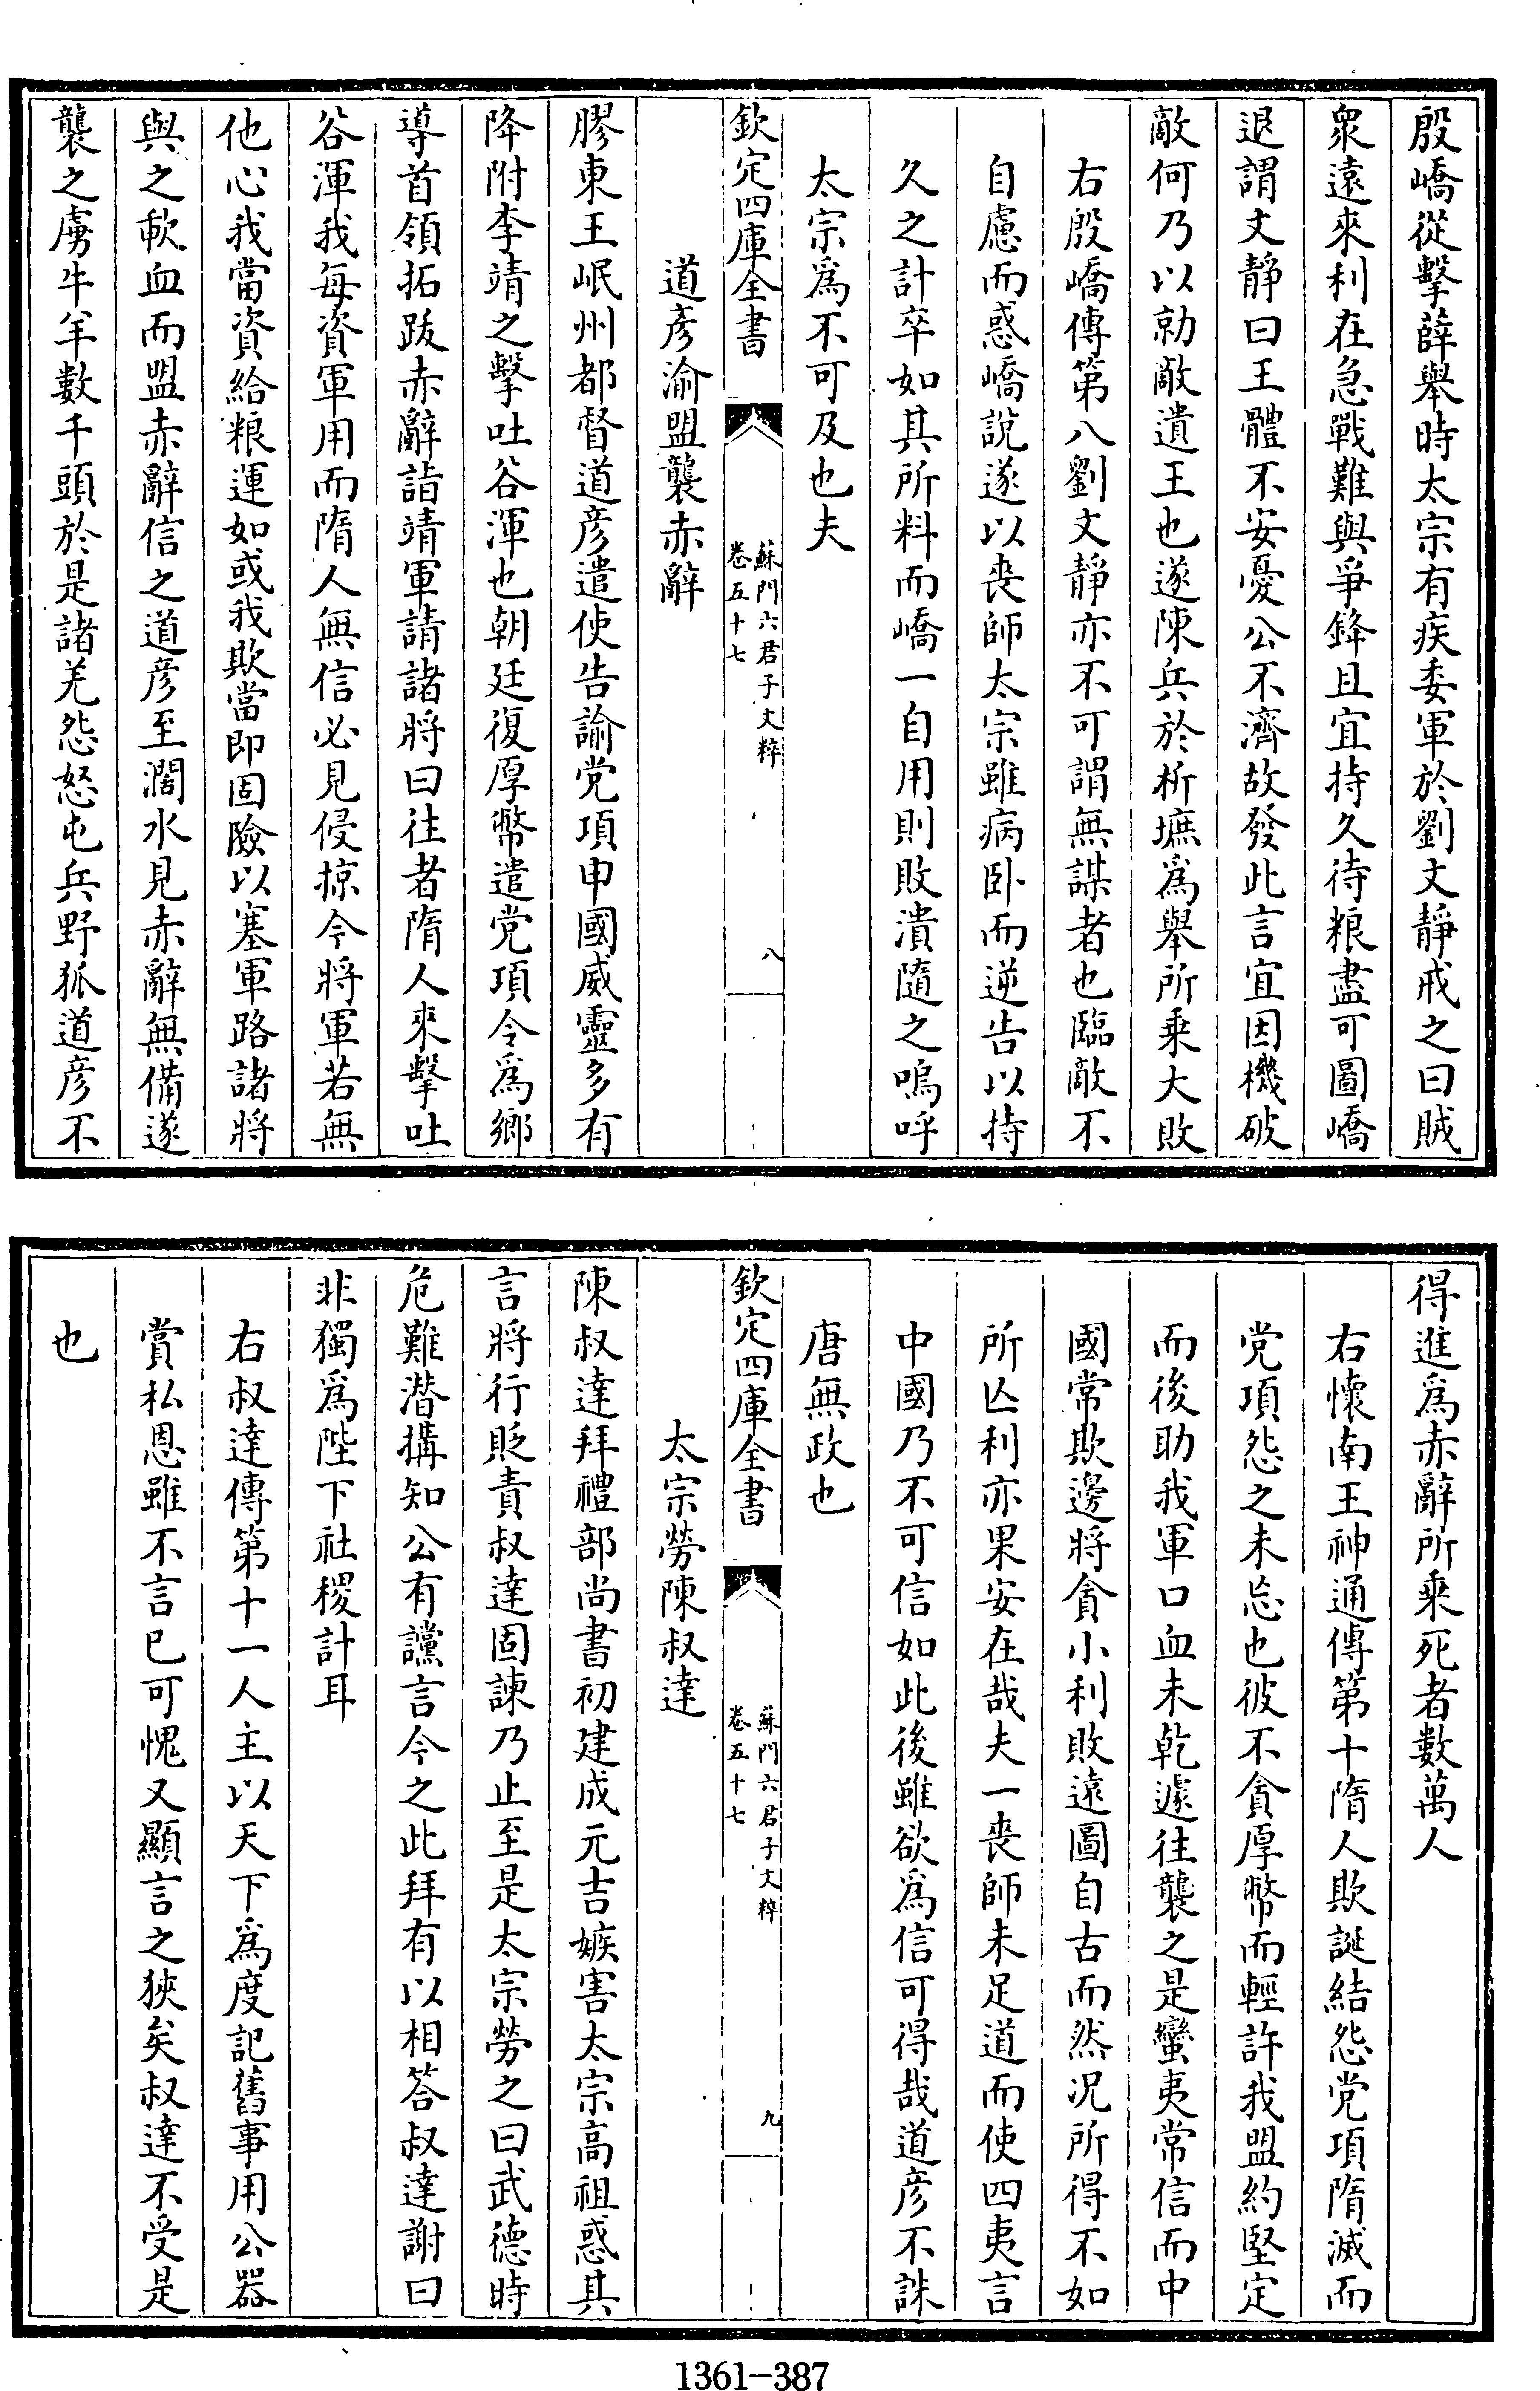 殷嶠從擊薛舉時太宗有疾委軍於劉文靜戒之曰賊
衆遠來利在急戰難與爭鋒且宜持久待粮盡可圖嶠
退謂文靜曰王體不安憂公不濟故發此言宜因機破
敵何乃以勍敵遺王也遂陳兵於析墌爲舉所乗大敗
右殷嶠傳第八劉文靜亦不可謂無謀者也臨敵不
自慮而惑嶠說遂以喪師太宗雖病卧而逆告以持
久之計卒如其所料而嶠一自用則敗潰隨之嗚呼
太宗爲不可及也夫
欽定四庫全書
蘇門六君子文粹
卷五十七
八
道彦渝盟襲赤辭
膠東王岷州都督道彦遣使告諭党項申國威靈多有
降附李靖之擊吐谷渾也朝廷復厚幣遣党項令爲鄉
導首領拓跋赤辭詣靖軍請諸將曰往者隋人來擊吐
谷渾我每資軍用而隋人無信必見侵掠今將軍若無
他心我當資給粮運如或我欺當即固險以塞軍路諸將
與之歃血而盟赤辭信之道彦至濶水見赤辭無備遂
襲之虜牛羊數千頭於是諸羌怨怒屯兵野狐道彦不
得進爲赤辭所乗死者數萬人
右懷南王神通傳第十隋人欺誕結怨党項隋滅而
党項怨之未忘也彼不貪厚幣而輕許我盟約堅定
而後助我軍口血未乾遽往襲之是蠻夷常信而中
國常欺邊將貪小利敗遠圖自古而然况所得不如
所亾利亦果安在哉夫一喪師未足道而使四夷言
中國乃不可信如此後雖欲爲信可得哉道彦不誅
唐無政也
欽定四庫全書
蘇門六君子文粹
卷五十七
九
太宗勞陳叔達
陳叔達拜禮部尚書初建成元吉嫉害太宗高祖惑其
言將行貶責叔達固諫乃止至是太宗勞之曰武德時
危難潛搆知公有讜言今之此拜有以相答叔達謝曰
非獨爲陛下社稷計耳
右叔達傳第十一人主以天下爲度記舊事用公器
賞私恩雖不言已可愧又顯言之狹矣叔達不受是
也
1361-387